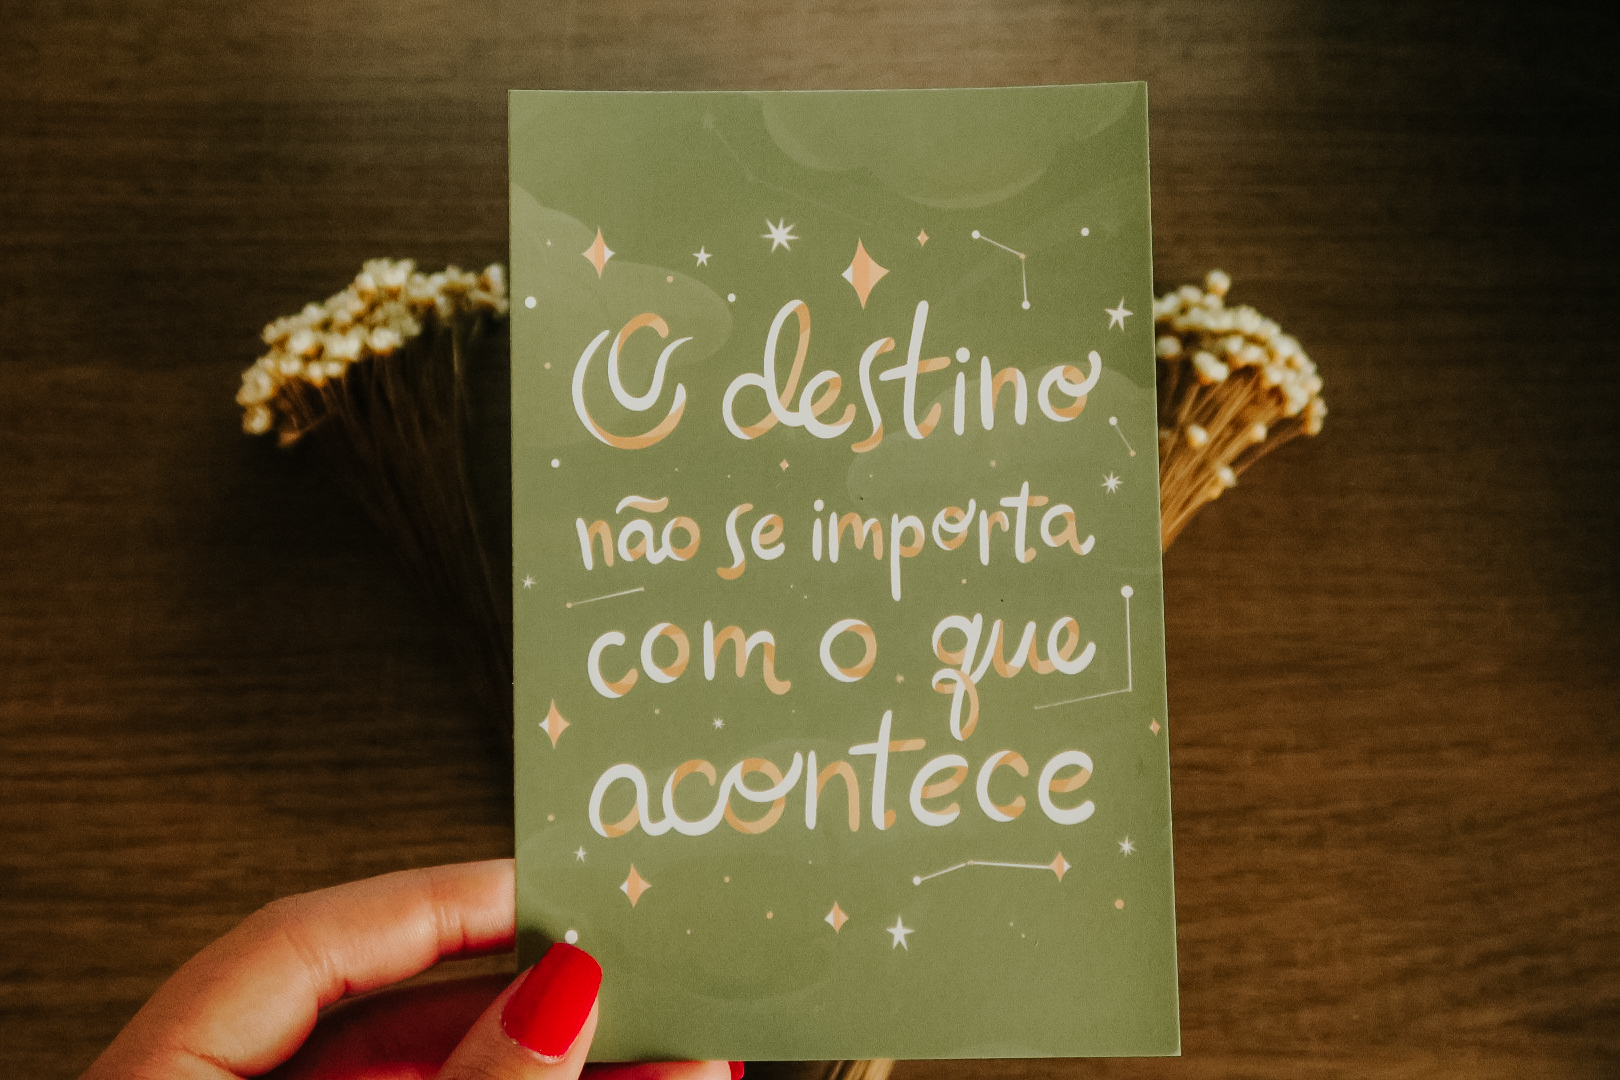 O destino
não se importa
com o que
acontece